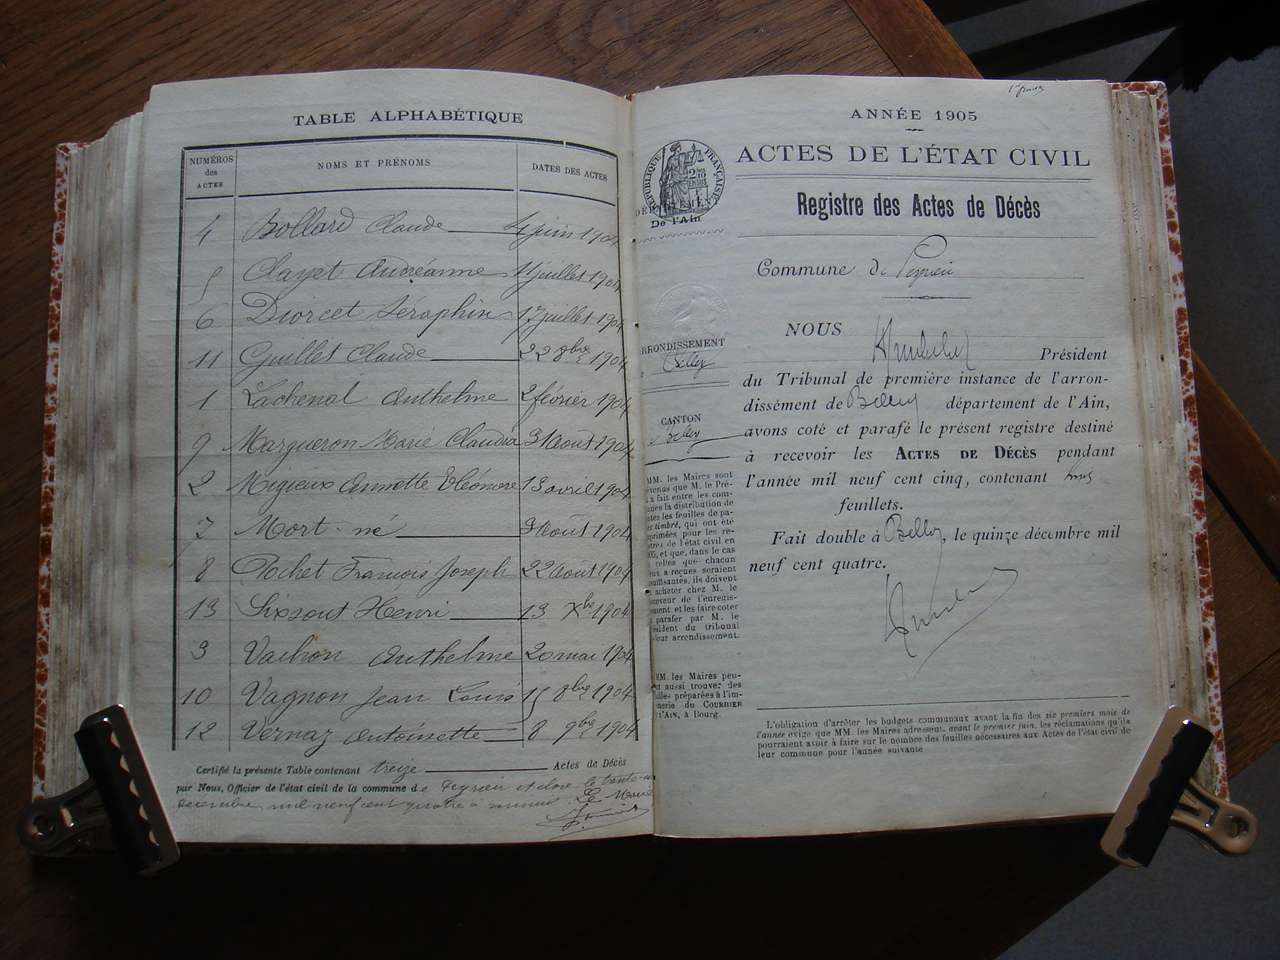 TABLE ALPHABÉTIQUE
NUMÉROS des ACTES NOMS ET PRÉNOMS DATES DES ACTES
4 Bollard Claude 4 juin 1904
5 Clayet Andréanne 11 juillet 1904
6 Diorcet Séraphin 17 juillet 1904
11 Guillet Claude 22 8bre 1904
1 Lachenal Anthelme 2 février 1904
9 Margueron Marie Claudia 31 Août 1904
2 Migieux Annette Eléonore 13 avril 1904
7 Mort-né 9 Août 1904
8 Pochet François Joseph 22 Août 1904
13 Henri 13 Xbre 1904
3 Vachon Anthelme 20 mai 1904
10 Vagnon Jean Louis 15 8bre 1904
12 Vernaz Antoinette 8 9bre 1904
Certifié la présente Table contenant treize Actes de Décès
par Nous, Officier de l'état civil de la commune de Peyrieu et clore le trente-un
décembre mil neuf cent quatre à minuit. Le Maire
ANNÉE 1905
ACTES DE L'ÉTAT CIVIL
Registre des Actes de Décès
RÉPUBLIQUE FRANÇAISE
DÉPARTEMENT
De l'Ain
Commune de Peyrieu
ARRONDISSEMENT
Belley
CANTON
Belley
NOUS Président
du Tribunal de première instance de l'arron-
dissément de Belley département de l'Ain,
avons coté et parafé le présent registre destiné
à recevoir les ACTES DE DÉCÈS pendant
l'année mil neuf cent cinq, contenant
feuillets.
Fait double à Belley, le quinze décembre mil
neuf cent quatre.
MM. les Maires sont
prévenus que M. le Pré-
a fait entre les com-
munes la distribution de
toutes les feuilles de pa-
pier timbré, qui ont été
imprimées pour les re-
gistres de l'état civil en
1905, et que, dans le cas
où celles que chacun
a reçues seraient
insuffisantes, ils doivent
acheter chez M. le
Receveur de l'enregis-
trement, et les faire coter
et parafer par M. le
Président du tribunal
de leur arrondissement.
MM. les Maires peu-
vent aussi trouver des
feuilles préparées à l'im-
primerie du COURRIER
DE L'AIN, à Bourg.
L'obligation d'arrêter les budgets communaux avant la fin des six premiers mois de
l'année exige que MM. les Maires adressent, avant le premier juin, les réclamations qu'ils
pourraient avoir à faire sur le nombre des feuilles nécessaires aux Actes de l'état civil de
leur commune pour l'année suivante